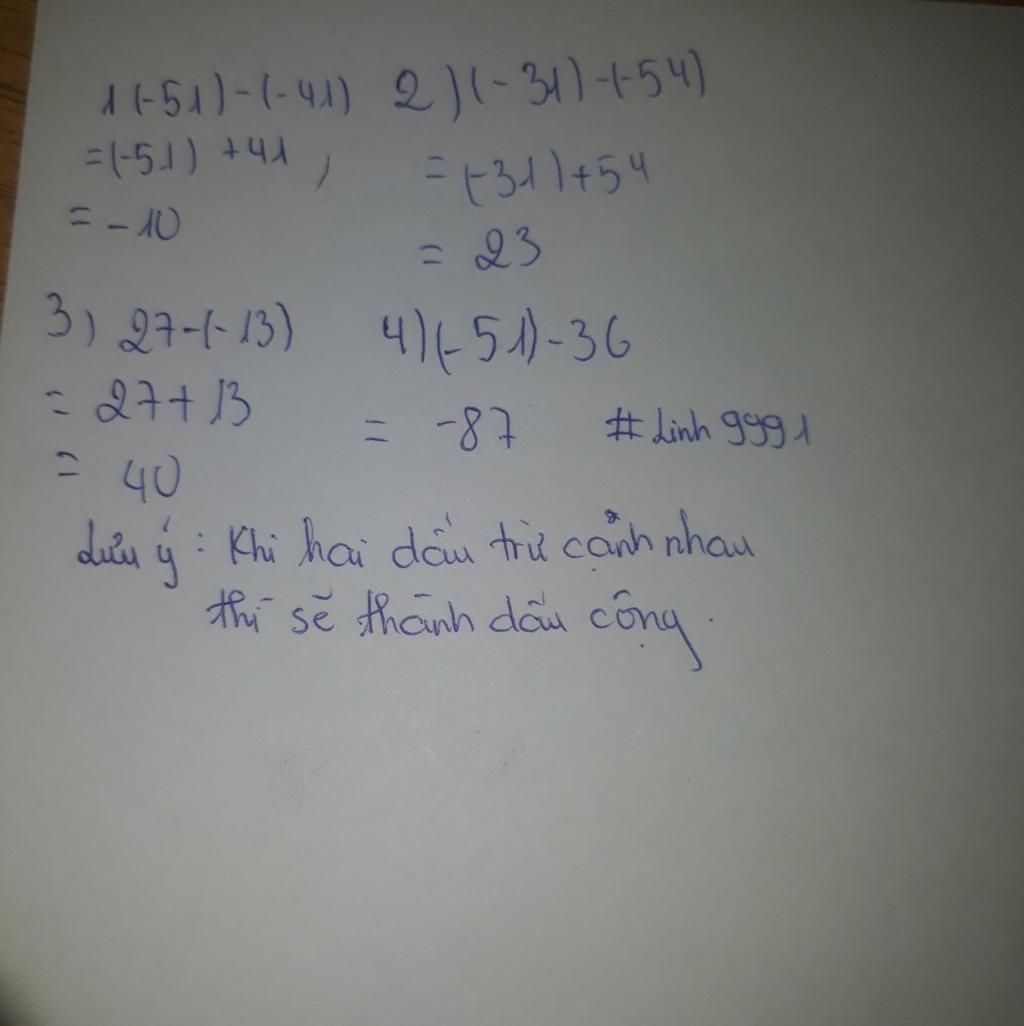 1 (-51) - (-41)
= (-51) + 41 ,
= -10
2) (-31) - (-54)
= (-31) + 54
= 23
3) 27 - (-13)
= 27 + 13
= 40
4) (-51) - 36
= -87
# Linh 9991
Lưu ý : Khi hai dấu trừ cạnh nhau
thì sẽ thành dấu cộng .